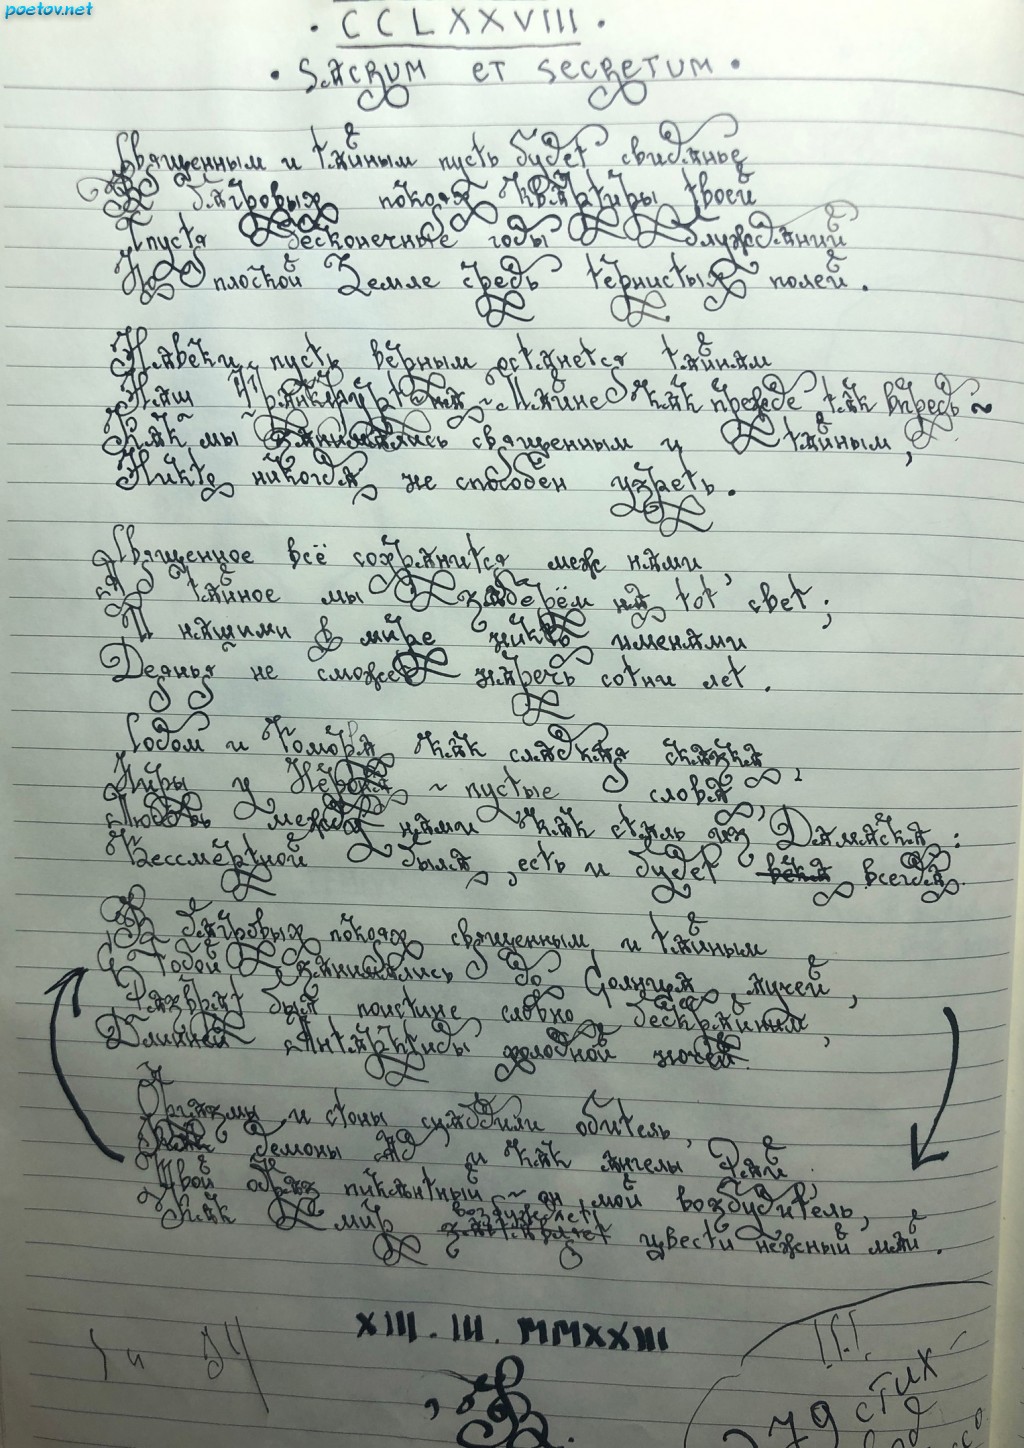 poetov.net
· CCLXXVIII ·
· SACRUM ET SECRETUM ·
Священным и тайным пусть будет свиданье
В багровых покоях квартиры твоей
Спустя бесконечные годы блужданий
По плоской Земле средь тернистых полей.
Навеки пусть верным останется тайнам
Наш Франкфурт-на-Майне как прежде так впредь ~
Как мы занимались священным и тайным,
Никто никогда не способен узреть.
Священное всё сохранится меж нами,
А тайное мы заберём на тот свет;
И нашими в мире никто именами
Деянья не сможет наречь сотни лет.
Содом и Гоморра как сладкая сказка,
Пиры у Нерона ~ пустые слова,
Любовь между нами как сталь из Дамаска:
Бессмертной была, есть и будет всегда.
В багровых покоях священным и тайным
С тобой занимались до Солнца лучей,
Разврат был поистине словно бескрайним,
Длинней Антарктиды холодной ночей.
Оргазмы и стоны снабдили обитель,
Как демоны Ад и как ангелы Рай,
Твой образ пикантный ~ он мой возбудитель,
Как мир возбуждает цвести нежный май.
XIII.III.MMXXIII
!!!
279 стих